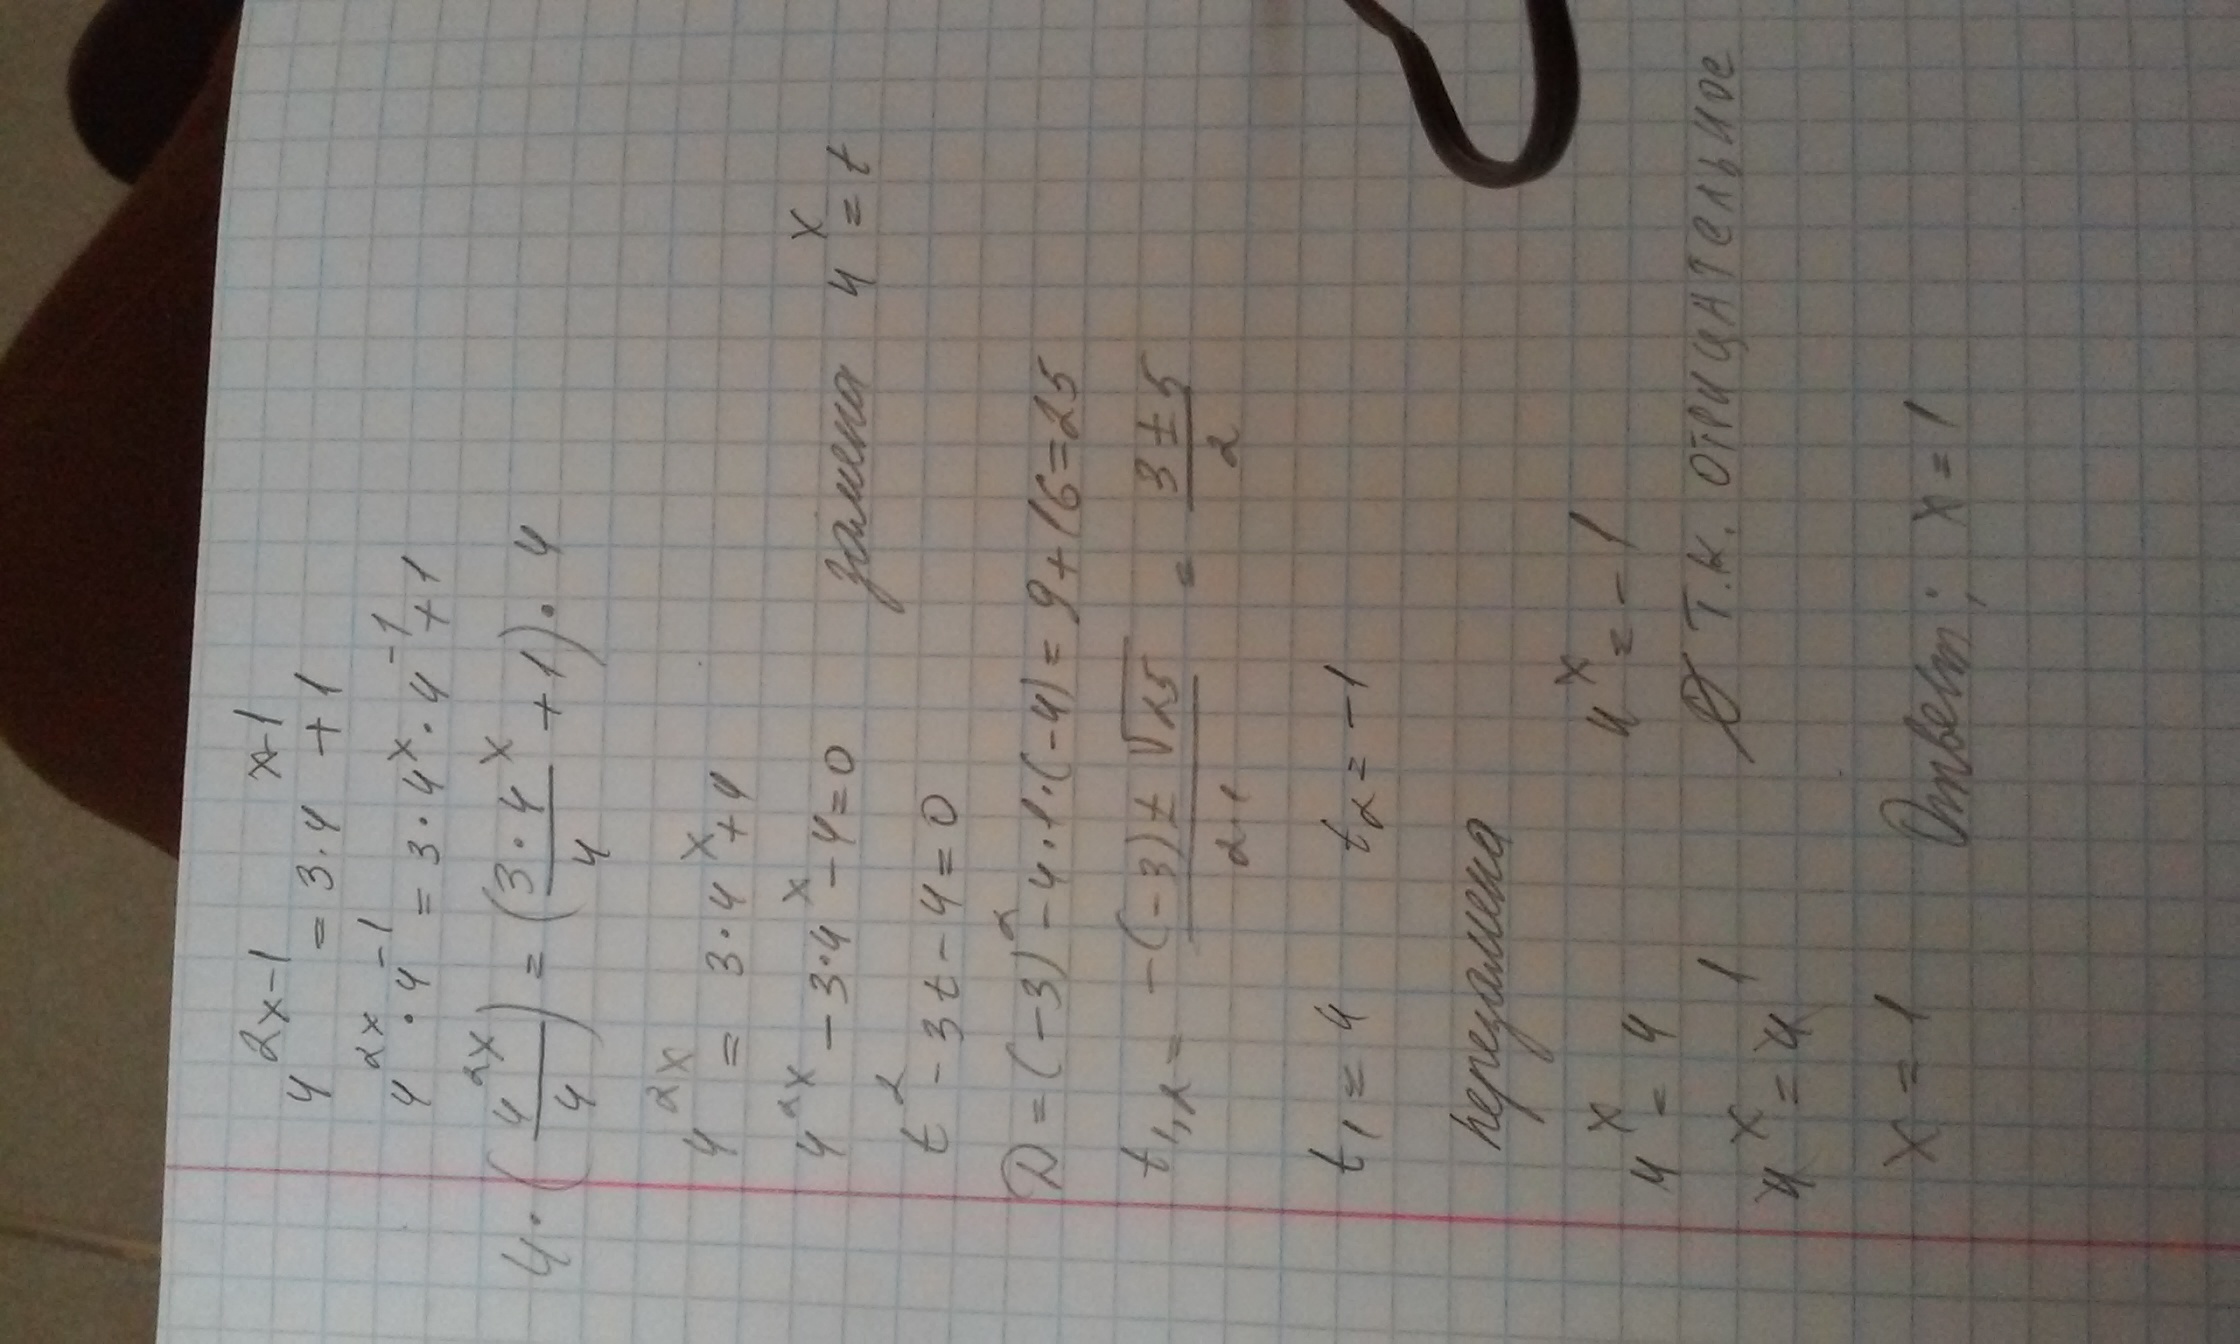 4^(2x-1) = 3·4^(x-1) + 1
4^(2x)·4^(-1) = 3·4^x·4^(-1) + 1
4·(4^(2x)/4) = (3·4^x/4 + 1)·4
4^(2x) = 3·4^x + 4
4^(2x) - 3·4^x - 4 = 0 замена 4^x = t
t^2 - 3t - 4 = 0
D = (-3)^2 - 4·1·(-4) = 9 + 16 = 25
t1,2 = (-(-3) ± √25)/(2·1) = (3 ± 5)/2
t1 = 4 t2 = -1
перезамена
4^x = 4 4^x = -1
4^x = 4^1 ∅ т.к. отрицательное
x = 1
Ответ: x = 1